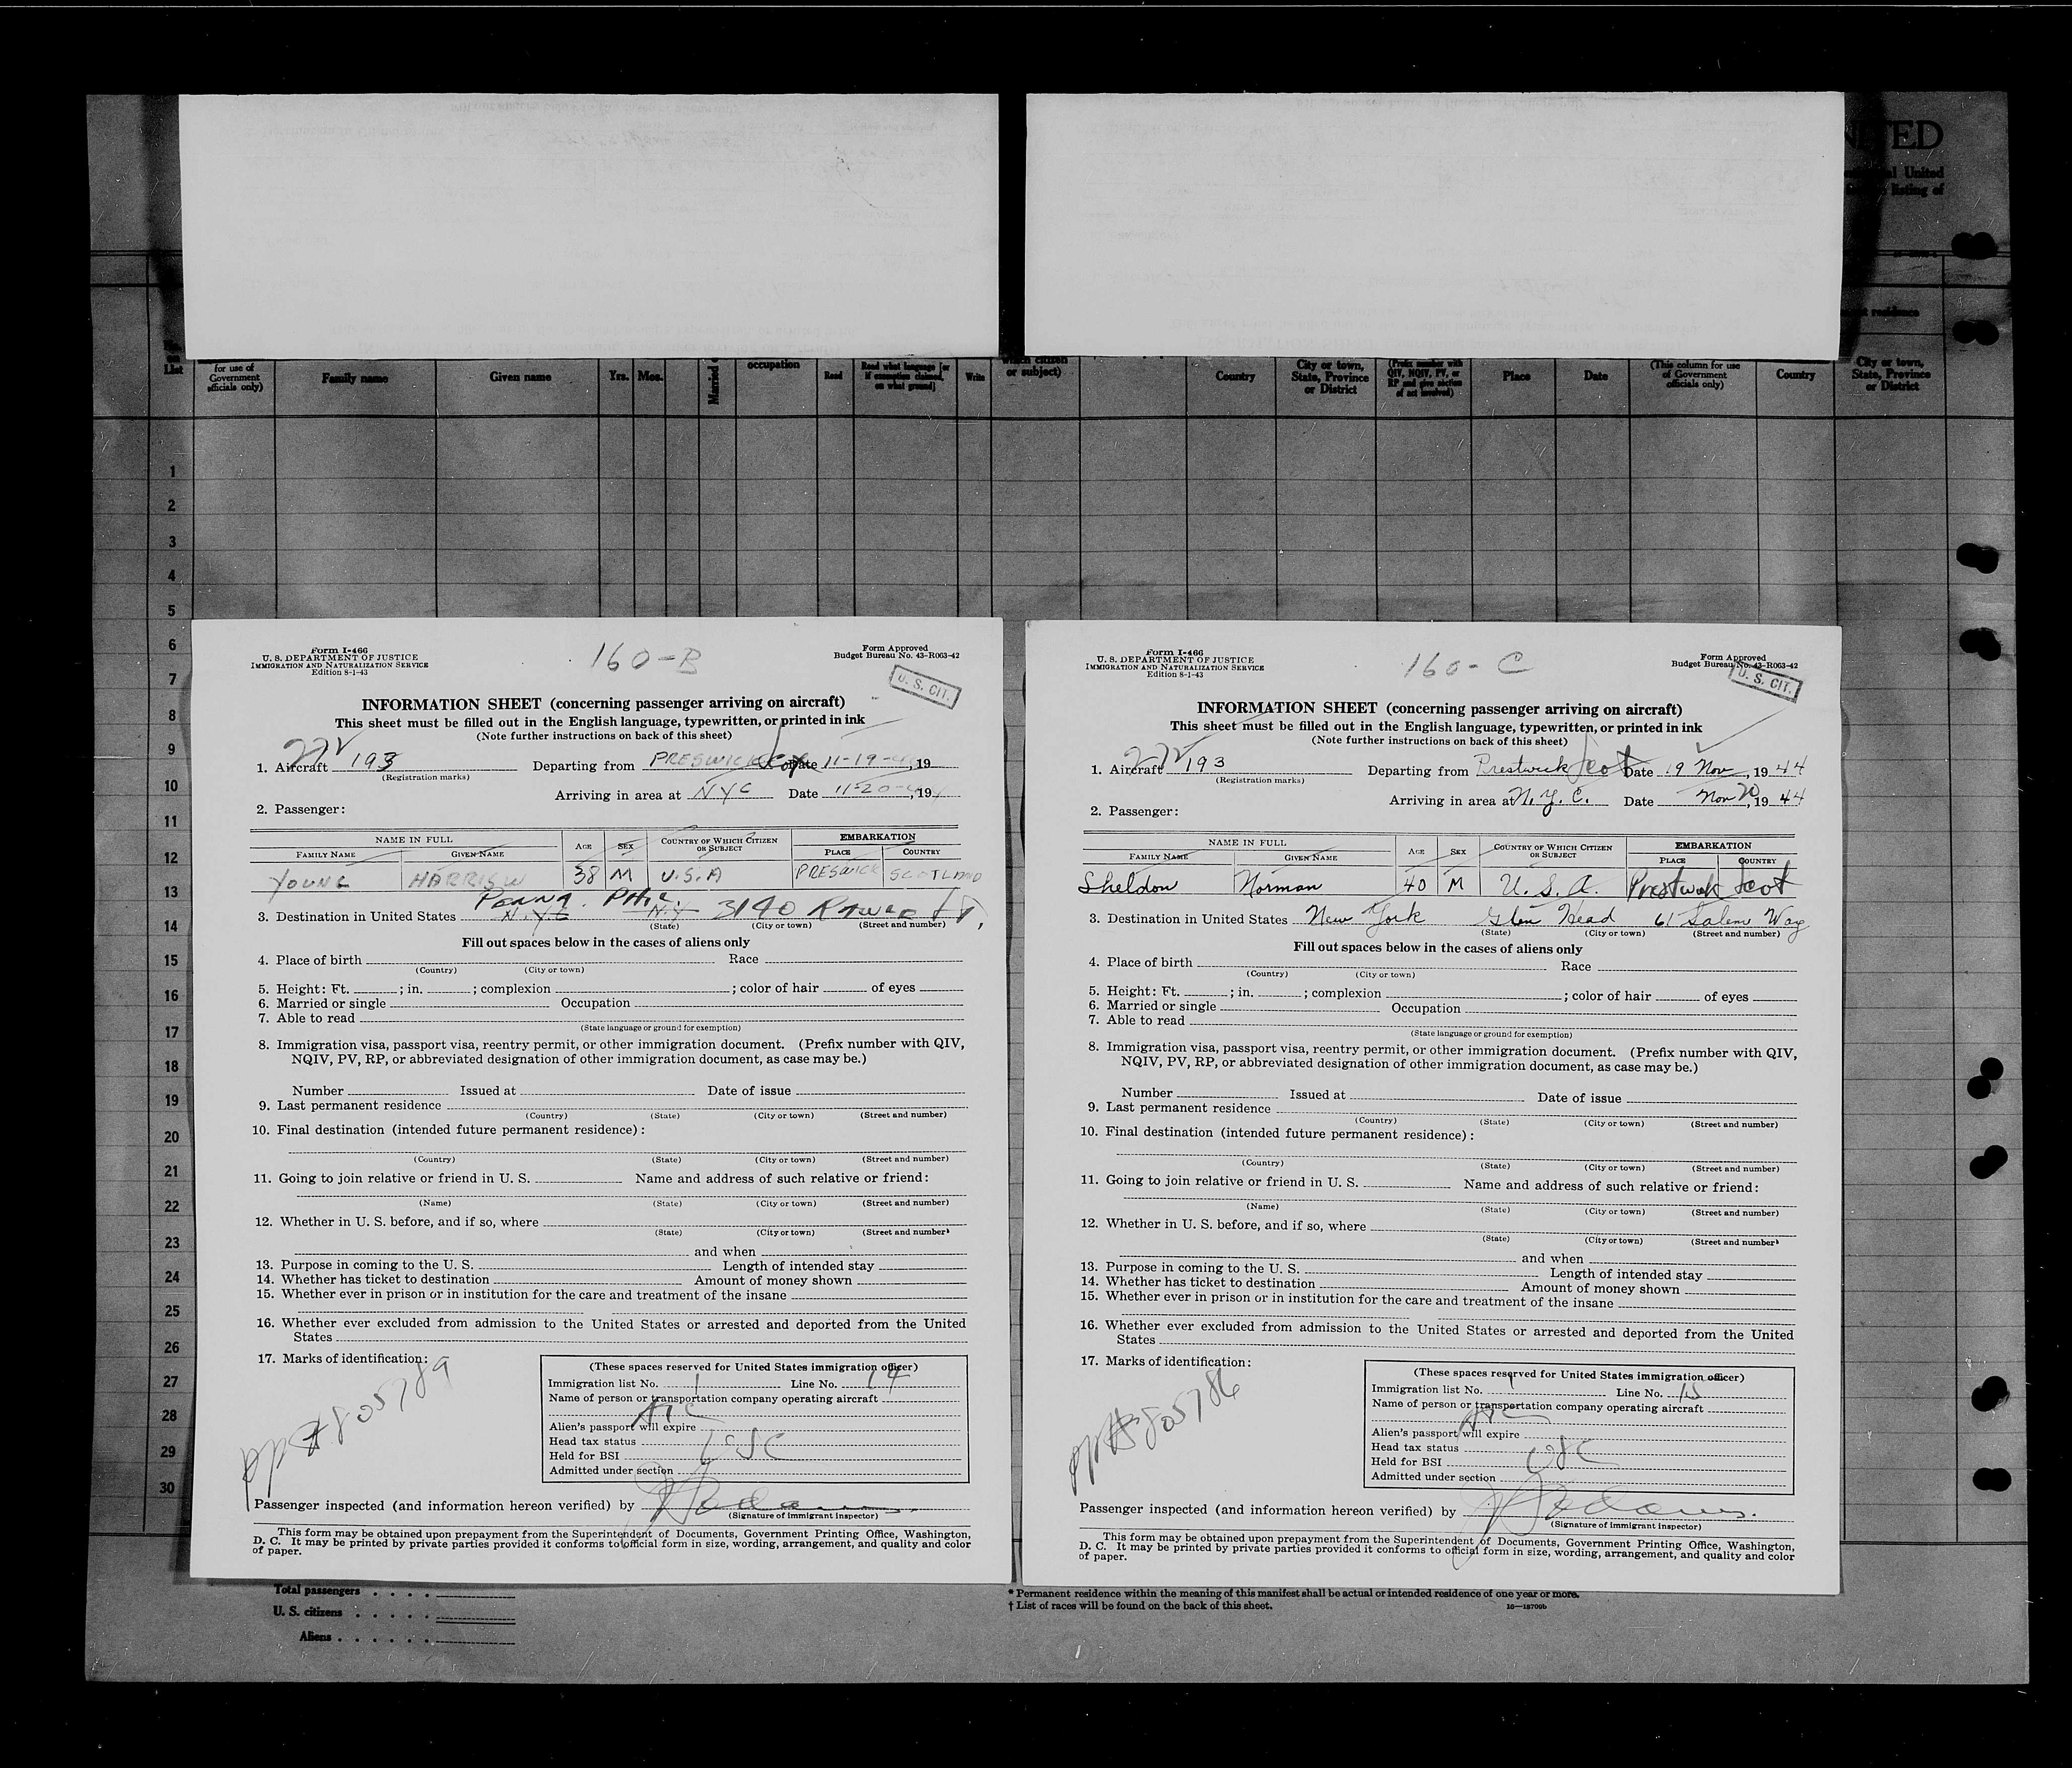 NITED
al United
listing of
t residence
No. on List
for use of Government officials only)
Family name
Given name
Yrs.
Mos.
Married
occupation
Read
Read what language [or if exemption claimed, on what ground]
Write
which citizen or subject)
Country
City or town, State, Province or District
(Prefix number with QIV, NQIV, PV, or RP and give section of act involved)
Place
Date
(This column for use of Government officials only)
Country
City or town, State, Province or District
1
2
3
4
5
6
7
8
9
10
11
12
13
14
15
16
17
18
19
20
21
22
23
24
25
26
27
28
29
30
Form I-466
U. S. DEPARTMENT OF JUSTICE
IMMIGRATION AND NATURALIZATION SERVICE
Edition 8-1-43
160-B
Form Approved
Budget Bureau No. 43-R063-42
U. S. CIT.
INFORMATION SHEET (concerning passenger arriving on aircraft)
This sheet must be filled out in the English language, typewritten, or printed in ink
(Note further instructions on back of this sheet)
1. Aircraft 193 Departing from PRESWICK Scot Date 11-19-4, 19
(Registration marks)
Arriving in area at NYC Date 11-20-44, 19
2. Passenger:
NAME IN FULL
FAMILY NAME GIVEN NAME AGE SEX COUNTRY OF WHICH CITIZEN OR SUBJECT EMBARKATION PLACE COUNTRY
YOUNG HARRIS W 38 M U.S.A PRESWICK SCOTLAND
Penna. Phil.
3. Destination in United States N.YC N.Y 3140
(State) (City or town) (Street and number)
Fill out spaces below in the cases of aliens only
4. Place of birth Race
(Country) (City or town)
5. Height: Ft. ; in. ; complexion ; color of hair of eyes
6. Married or single Occupation
7. Able to read
(State language or ground for exemption)
8. Immigration visa, passport visa, reentry permit, or other immigration document. (Prefix number with QIV,
NQIV, PV, RP, or abbreviated designation of other immigration document, as case may be.)
Number Issued at Date of issue
9. Last permanent residence
(Country) (State) (City or town) (Street and number)
10. Final destination (intended future permanent residence):
(Country) (State) (City or town) (Street and number)
11. Going to join relative or friend in U. S. Name and address of such relative or friend:
(Name) (State) (City or town) (Street and number)
12. Whether in U. S. before, and if so, where
(State) (City or town) (Street and number)
and when
13. Purpose in coming to the U. S. Length of intended stay
14. Whether has ticket to destination Amount of money shown
15. Whether ever in prison or in institution for the care and treatment of the insane
16. Whether ever excluded from admission to the United States or arrested and deported from the United
States
17. Marks of identification:
pp# 805789
(These spaces reserved for United States immigration officer)
Immigration list No. 1 Line No. 14
Name of person or transportation company operating aircraft
ATC
Alien's passport will expire
Head tax status USC
Held for BSI
Admitted under section
Passenger inspected (and information hereon verified) by
(Signature of immigrant inspector)
This form may be obtained upon prepayment from the Superintendent of Documents, Government Printing Office, Washington,
D. C. It may be printed by private parties provided it conforms to official form in size, wording, arrangement, and quality and color
of paper.
Form I-466
U. S. DEPARTMENT OF JUSTICE
IMMIGRATION AND NATURALIZATION SERVICE
Edition 8-1-43
160-C
Form Approved
Budget Bureau No. 43-R063-42
U. S. CIT.
INFORMATION SHEET (concerning passenger arriving on aircraft)
This sheet must be filled out in the English language, typewritten, or printed in ink
(Note further instructions on back of this sheet)
1. Aircraft 193 Departing from Prestwick Scot Date 19 Nov, 1944
(Registration marks)
Arriving in area at N.Y.C. Date Nov 20, 1944
2. Passenger:
NAME IN FULL
FAMILY NAME GIVEN NAME AGE SEX COUNTRY OF WHICH CITIZEN OR SUBJECT EMBARKATION PLACE COUNTRY
Sheldon Norman 40 M U.S.A. Prestwick Scot
3. Destination in United States New York Glen Head 61 Salem Way
(State) (City or town) (Street and number)
Fill out spaces below in the cases of aliens only
4. Place of birth Race
(Country) (City or town)
5. Height: Ft. ; in. ; complexion ; color of hair of eyes
6. Married or single Occupation
7. Able to read
(State language or ground for exemption)
8. Immigration visa, passport visa, reentry permit, or other immigration document. (Prefix number with QIV,
NQIV, PV, RP, or abbreviated designation of other immigration document, as case may be.)
Number Issued at Date of issue
9. Last permanent residence
(Country) (State) (City or town) (Street and number)
10. Final destination (intended future permanent residence):
(Country) (State) (City or town) (Street and number)
11. Going to join relative or friend in U. S. Name and address of such relative or friend:
(Name) (State) (City or town) (Street and number)
12. Whether in U. S. before, and if so, where
(State) (City or town) (Street and number)
and when
13. Purpose in coming to the U. S. Length of intended stay
14. Whether has ticket to destination Amount of money shown
15. Whether ever in prison or in institution for the care and treatment of the insane
16. Whether ever excluded from admission to the United States or arrested and deported from the United
States
17. Marks of identification:
pp# 805786
(These spaces reserved for United States immigration officer)
Immigration list No. 1 Line No. 15
Name of person or transportation company operating aircraft
ATC
Alien's passport will expire
Head tax status USC
Held for BSI
Admitted under section
Passenger inspected (and information hereon verified) by
(Signature of immigrant inspector)
This form may be obtained upon prepayment from the Superintendent of Documents, Government Printing Office, Washington,
D. C. It may be printed by private parties provided it conforms to official form in size, wording, arrangement, and quality and color
of paper.
Total passengers
U. S. citizens
Aliens
* Permanent residence within the meaning of this manifest shall be actual or intended residence of one year or more.
† List of races will be found on the back of this sheet.
16—18700b